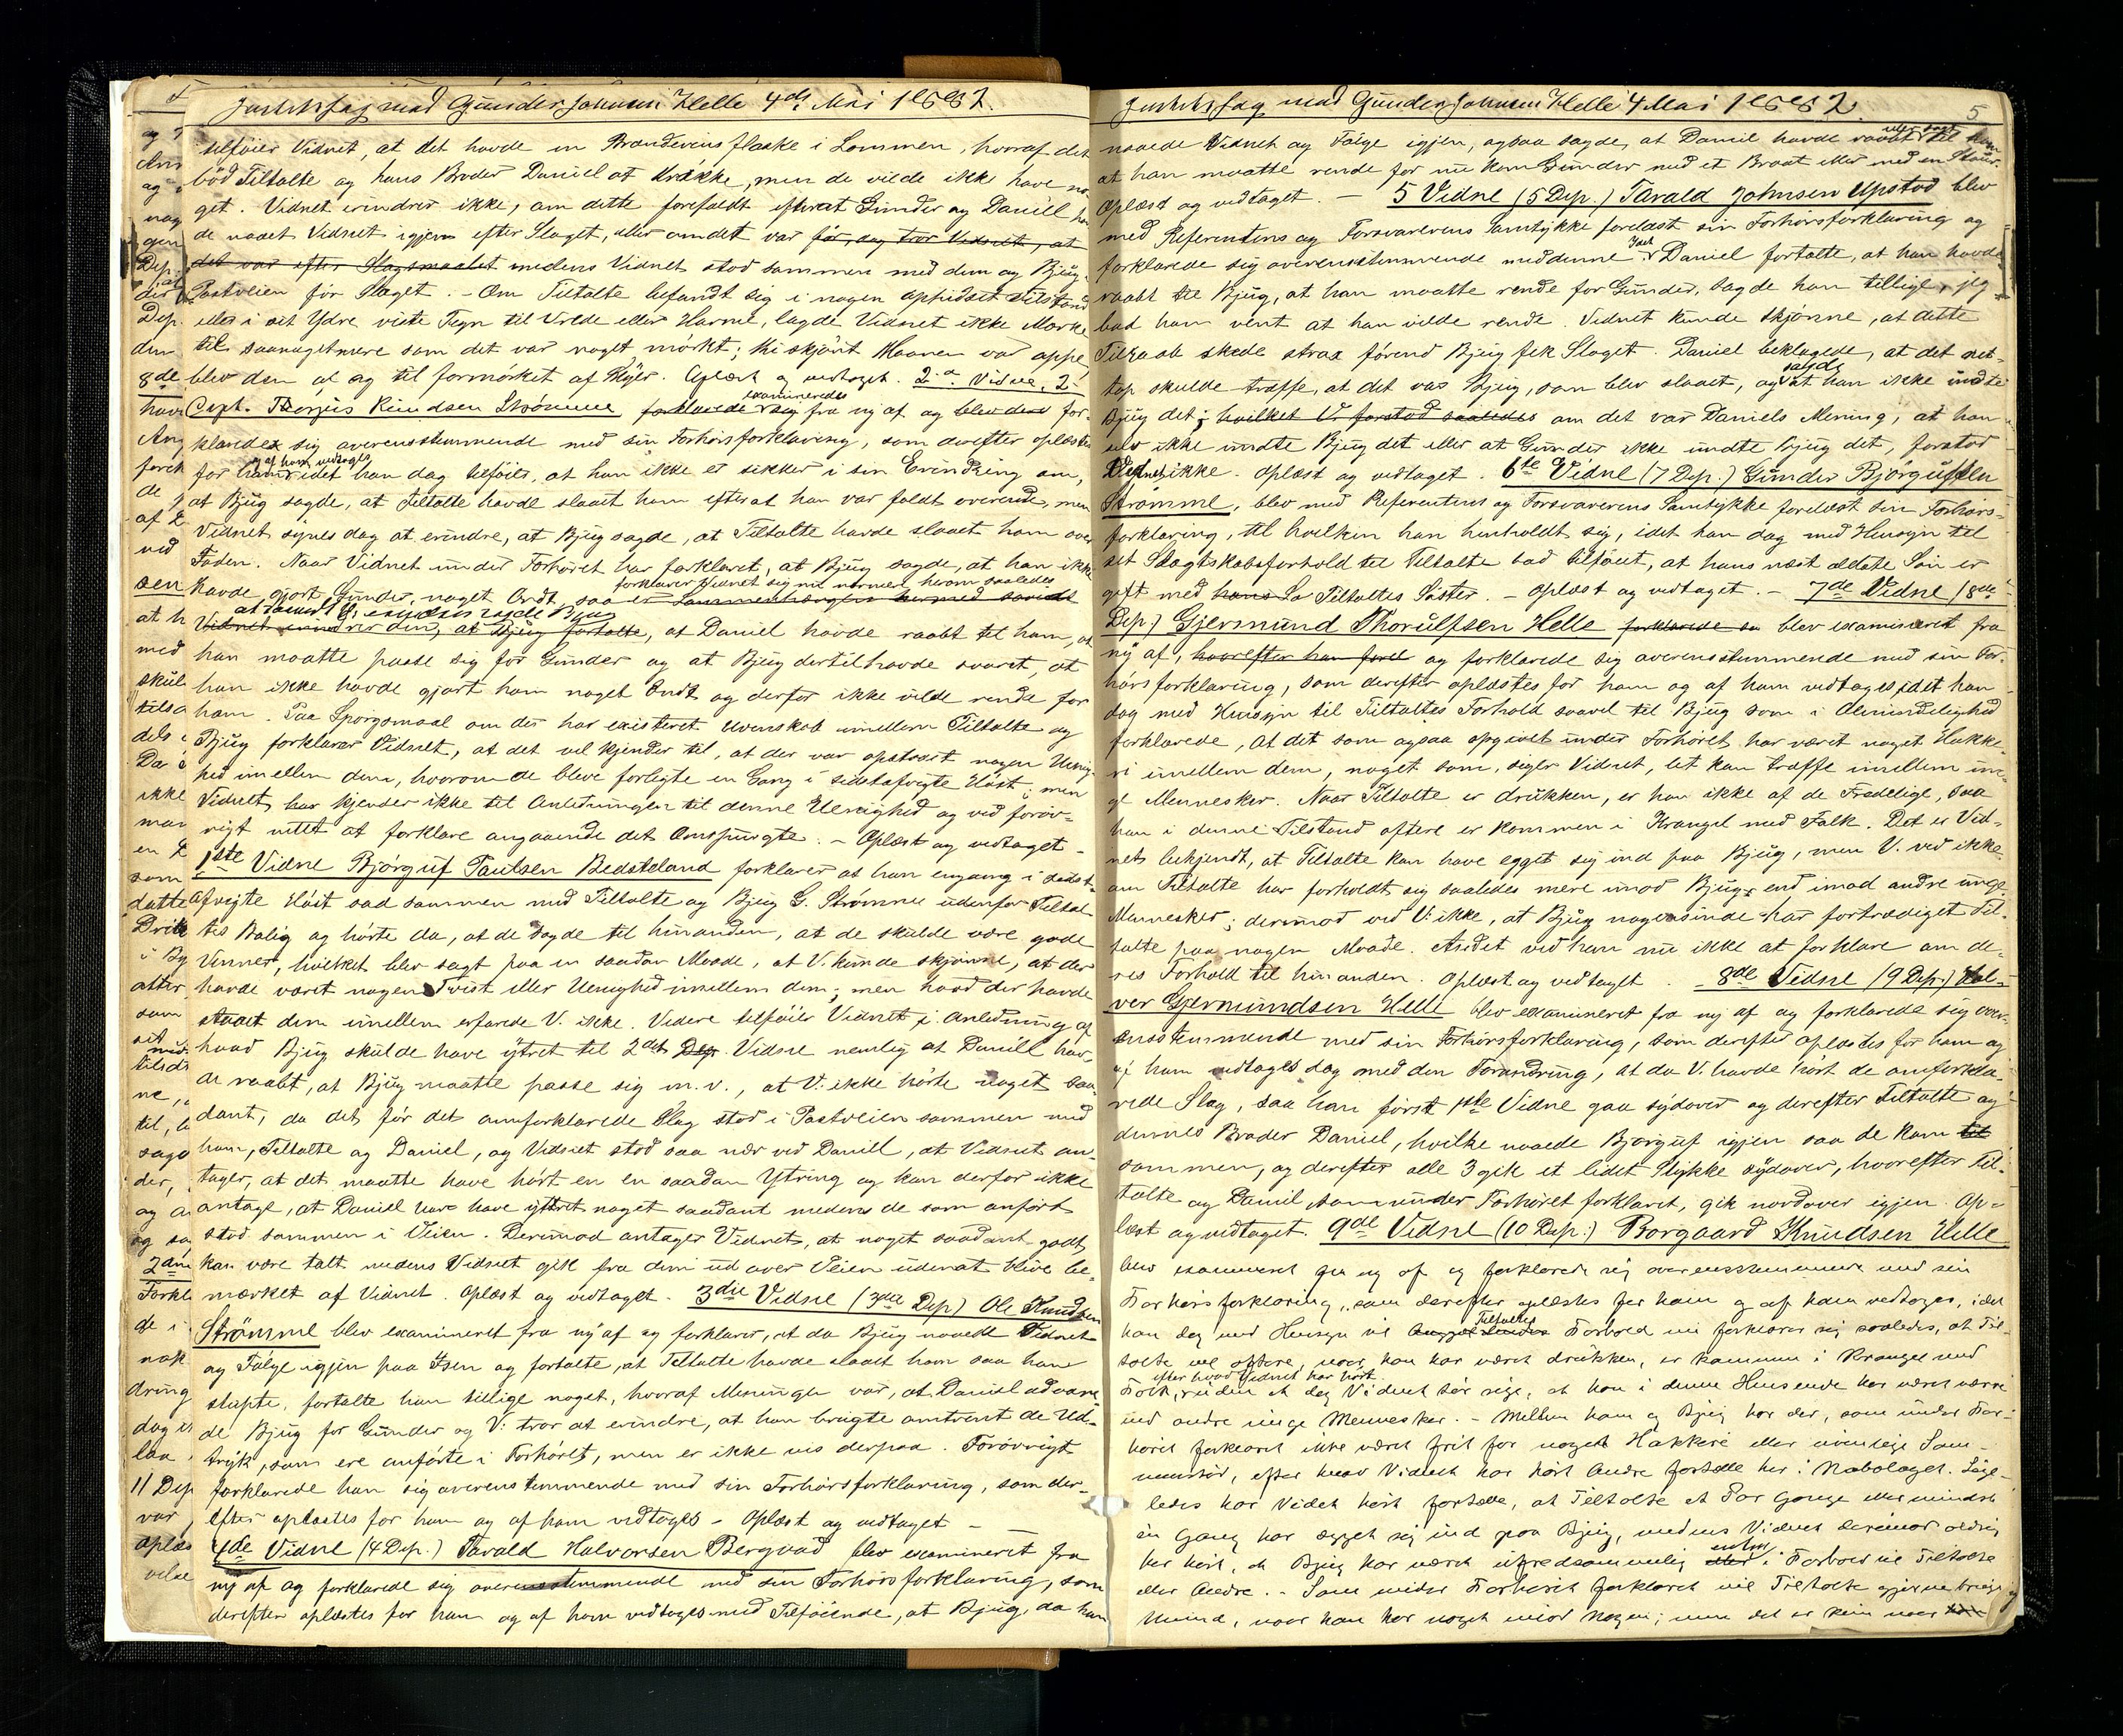 Justitssag mod Gunder Johnsen Helle 4de Mai 1882.
tilføier Vidnet, at det havde en Brændevinsflaske i Lommen, hvoraf det
bød Tiltalte og hans Broder Daniel at drikke, men de vilde ikke have no
get. Vidnet erindrer ikke, om dette forefaldt efterat Gunder og Daniel ha
de naaet Vidnet igjen efter Slaget, eller om det var før, dog tror Vidnet, at
det var efter Slagsmaalet medens Vidnet stod sammen med dem og Bjug
Postveien før Slaget. - Om Tiltalte befandt sig i nogen ophidset Tilstand
eller i sit Ydre viste Tegn til Vrede eller Harme, lagde Vidnet ikke Mærke
til saameget mere som det var noget mørkt; thi skjønt Maanen var oppe
blev den af og til formørket af Skyer. Oplæst og vedtaget. 2det Vidne, 2
Dept. Thorjus Knudsen Strømme forklarede sig examineredes fra ny af og blev den for-
klarede sig overensstemmende med sin Forhørsforklaring, som derefter oplæstes
for ham og af ham vedtoges idet han dog tilføier, at han ikke er sikker i sin Erindring om,
at Bjug sagde, at Tiltalte havde slaaet ham efterat han var faldt overende, men
Vidnet synes dog at erindre, at Bjug sagde, at Tiltalte havde slaaet ham over
Foden. Naar Vidnet under Forhøret har forklaret, at Bjug sagde, at han ikke
havde gjort Gunder noget Ondt, saa er Sammenhængen hermed saaledes forklarer Vidnet sig nu nærmere herom saaledes
Vidnet erindrer den, at Bjug fortalte, at Daniel havde raabt til ham, at
han maatte passe sig for Gunder og at Bjug dertil havde svaret, at
han ikke havde gjort ham noget Ondt og derfor ikke vilde rende for
ham. Paa Spørgsmaal om der har existeret Uvenskab imellem Tiltalte og
Bjug forklarer Vidnet, at det vel kjender til, at der var opstaaet nogen Uenig-
hed imellem dem, hvorom de bleve forligte en Gang i sidstafvigte Høst; men
Vidnet har kjender ikke til Anledningen til denne Uenighed og ved forøv-
rigt intet at forklare angaaende det Omspurgte. - Oplæst og vedtaget -
1ste Vidne Bjørguf Paulsen Bedsteland forklarer at han engang i sidst-
afvigte Høst sad sammen med Tiltalte og Bjug G. Strømme udenfor Tiltal-
tes Bolig og hørte da, at de sagde til hinanden, at de skulde være gode
Venner, hvilket blev sagt paa en saadan Maade, at V. kunde skjønne, at der
havde været nogen Tvist eller Uenighed imellem dem; men hvad der havde
staaet dem imellem erfarede V. ikke. Videre tilføier Vidnet i Anledning af
hvad Bjug skulde have ytret til 2det Dep. Vidne nemlig at Daniel hav-
de raabt, at Bjug maatte passe sig m. v., at V. ikke hørte noget saa-
dant, da det før det omforklarede Slag stod i Postveien sammen med
ham, Tiltalte og Daniel, og Vidnet stod saa nær ved Daniel, at Vidnet an-
tager, at det maatte have hørt en en saadan Ytring og kan derfor ikke
antage, at Daniel have have ytret noget saadant medens de som anført
stod sammen i Veien. Derimod antager Vidnet, at noget saadant godt
kan være talt medens Vidnet gik fra dem ud over Veien uden at blive be-
mærket af Vidnet. Oplæst og vedtaget. 3die Vidne (3die Dep) Ole Knudsen
Strømme blev examineret fra ny af og forklarer, at da Bjug naaede Vidnet
og Følge igjen paa Isen og fortalte, at Tiltalte havde slaaet ham saa han
stupte, fortalte han tillige noget, hvoraf Meningen var, at Daniel advare-
de Bjug for Gunder og V. tror at erindre, at han brugte omtrent de Ud-
tryk, som ere anførte i Forhøret, men er ikke vis derpaa. Forøvrigt
forklarede han sig overensstemmende med sin Forhørsforklaring, som der-
efter oplæstes for ham og af ham vedtoges - Oplæst og vedtaget -
4de Vidne (4 Dep.) Tarald Halvorsen Bergvad blev examineret fra
ny af og forklarede sig overensstemmende med sin Forhørsforklaring, som
derefter oplæstes for ham og af ham vedtoges med Tilføiende, at Bjug, da han
Justitssag mod Gunder Johnsen Helle 4 Mai 1882. 5
naaede Vidnet og Følge igjen, ogsaa sagde, at Daniel havde raabt til ham
at han maatte rende for nu kom Gunder med et Brast eller med en Staur.
Oplæst og vedtaget. - 5 Vidne (5 Dep.) Tarald Johnsen Upstad blev
med Referentens og Forsvarerens Samtykke forelæst sin Forhørsforklaring og
forklarede sig overensstemmende med denne. Idet Daniel fortalte, at han havde
raabt til Bjug, at han maatte rende for Gunder, sagde han tillige, jeg
bad ham vent at han vilde rende. Vidnet kunde skjønne, at dette
Tilraab skede strax førend Bjug fik Slaget. Daniel beklagede, at det net-
top skulde træffe, at det var Bjug, som blev slaaet, og sagde at han ikke undte
Bjug det; hvilket V. forstod saaledes om det var Daniels Mening, at han
selv ikke undte Bjug det eller at Gunder ikke undte Bjug det, forstod
Vidnet ikke. Oplæst og vedtaget. 6te Vidne (7 Dep.) Gunder Bjørgufsen
Strømme, blev med Referentens og Forsvarerens Samtykke forelæst sin Forhørs-
forklaring, til hvilken han henholdt sig, idet han dog med Hensyn til
sit Slægtskabsforhold til Tiltalte bad tilføiet, at hans næst ældste Søn er
gift med hans So Tiltaltes Søster. - Oplæst og vedtaget. - 7de Vidne (8de
Dep.) Gjermund Thorulfsen Helle forklarede sa blev examineret fra
ny af, hvorefter han forel og forklarede sig overensstemmende med sin For-
hørsforklaring, som derefter oplæstes for ham og af ham vedtoges idet han
dog med Hensyn til Tiltaltes Forhold saavel til Bjug som i Almindelighed
forklarede, at det som ogsaa opgivet under Forhøret har været noget Hakke-
ri imellem dem, noget som, siger Vidnet, let kan træffe imellem un-
ge Mennesker. Naar Tiltalte er drukken, er han ikke af de Fredelige, saa
han i denne Tilstand oftere er kommen i Krangel med Folk. Det er Vid-
net bekjendt, at Tiltalte kan have egget sig ind paa Bjug, men V. ved ikke
om Tiltalte har forholdt sig saaledes mere imod Bjug, end imod andre unge
Mennesker; derimod ved V. ikke, at Bjug nogensinde har fortrædiget Til-
talte paa nogen Maade. Andet ved han nu ikke at forklare om de-
res Forhold til hinanden. Oplæst og vedtaget. - 8de Vidne (9 Dep.) Hal-
vor Gjermundsen Helle blev examineret fra ny af og forklarede sig over-
ensstemmende med sin Forhørsforklaring, som derefter oplæstes for ham og
af ham vedtoges dog med den Forandring, at da V. havde hørt de omforkla-
rede Slag, saa han først 1ste Vidne gaa sydover og derefter Tiltalte og
dennes Broder Daniel, hvilke naaede Bjørguf igjen saa de kom til
sammen, og derefter alle 3 gik et lidet Stykke sydover, hvorefter Til-
talte og Daniel som under Forhøret forklaret, gik nordover igjen. Op-
læst og vedtaget. 9de Vidne (10 Dep.) Borgaard Knudsen Helle
blev examineret fra ny af og forklarede sig overensstemmende med sin
Forhørsforklaring, som derefter oplæstes for ham og af ham vedtoges, idet
han dog med Hensyn til Tiltaltes Forhold nu forklarer sig saaledes, at Til-
talte vel oftere, naar han har været drukken, er kommen i Krangel med
Folk, efter hvad Vidnet har hørt uden at dog Vidnet tør sige, at han i denne Henseende har været værre
end andre unge Mennesker. - Mellem ham og Bjug har der, som under For-
høret forklaret ikke været frit for noget Hakkeri eller uvenlige Sam-
menstød, efter hvad Vidnet har hørt Andre fortælle her i Nabolaget. Lige-
ledes har Vidnet hørt fortælle, at Tiltalte et Par Gange eller mindst
en Gang har egget sig ind paa Bjug, medens Vidnet derimod aldrig
har hørt, at Bjug har været ufredsommelig enten i Forhold til Tiltalte
eller Andre. - Som under Forhøret forklaret vil Tiltalte gjerne bruge
Mund, naar han har noget imod Nogen; men det er kun naar